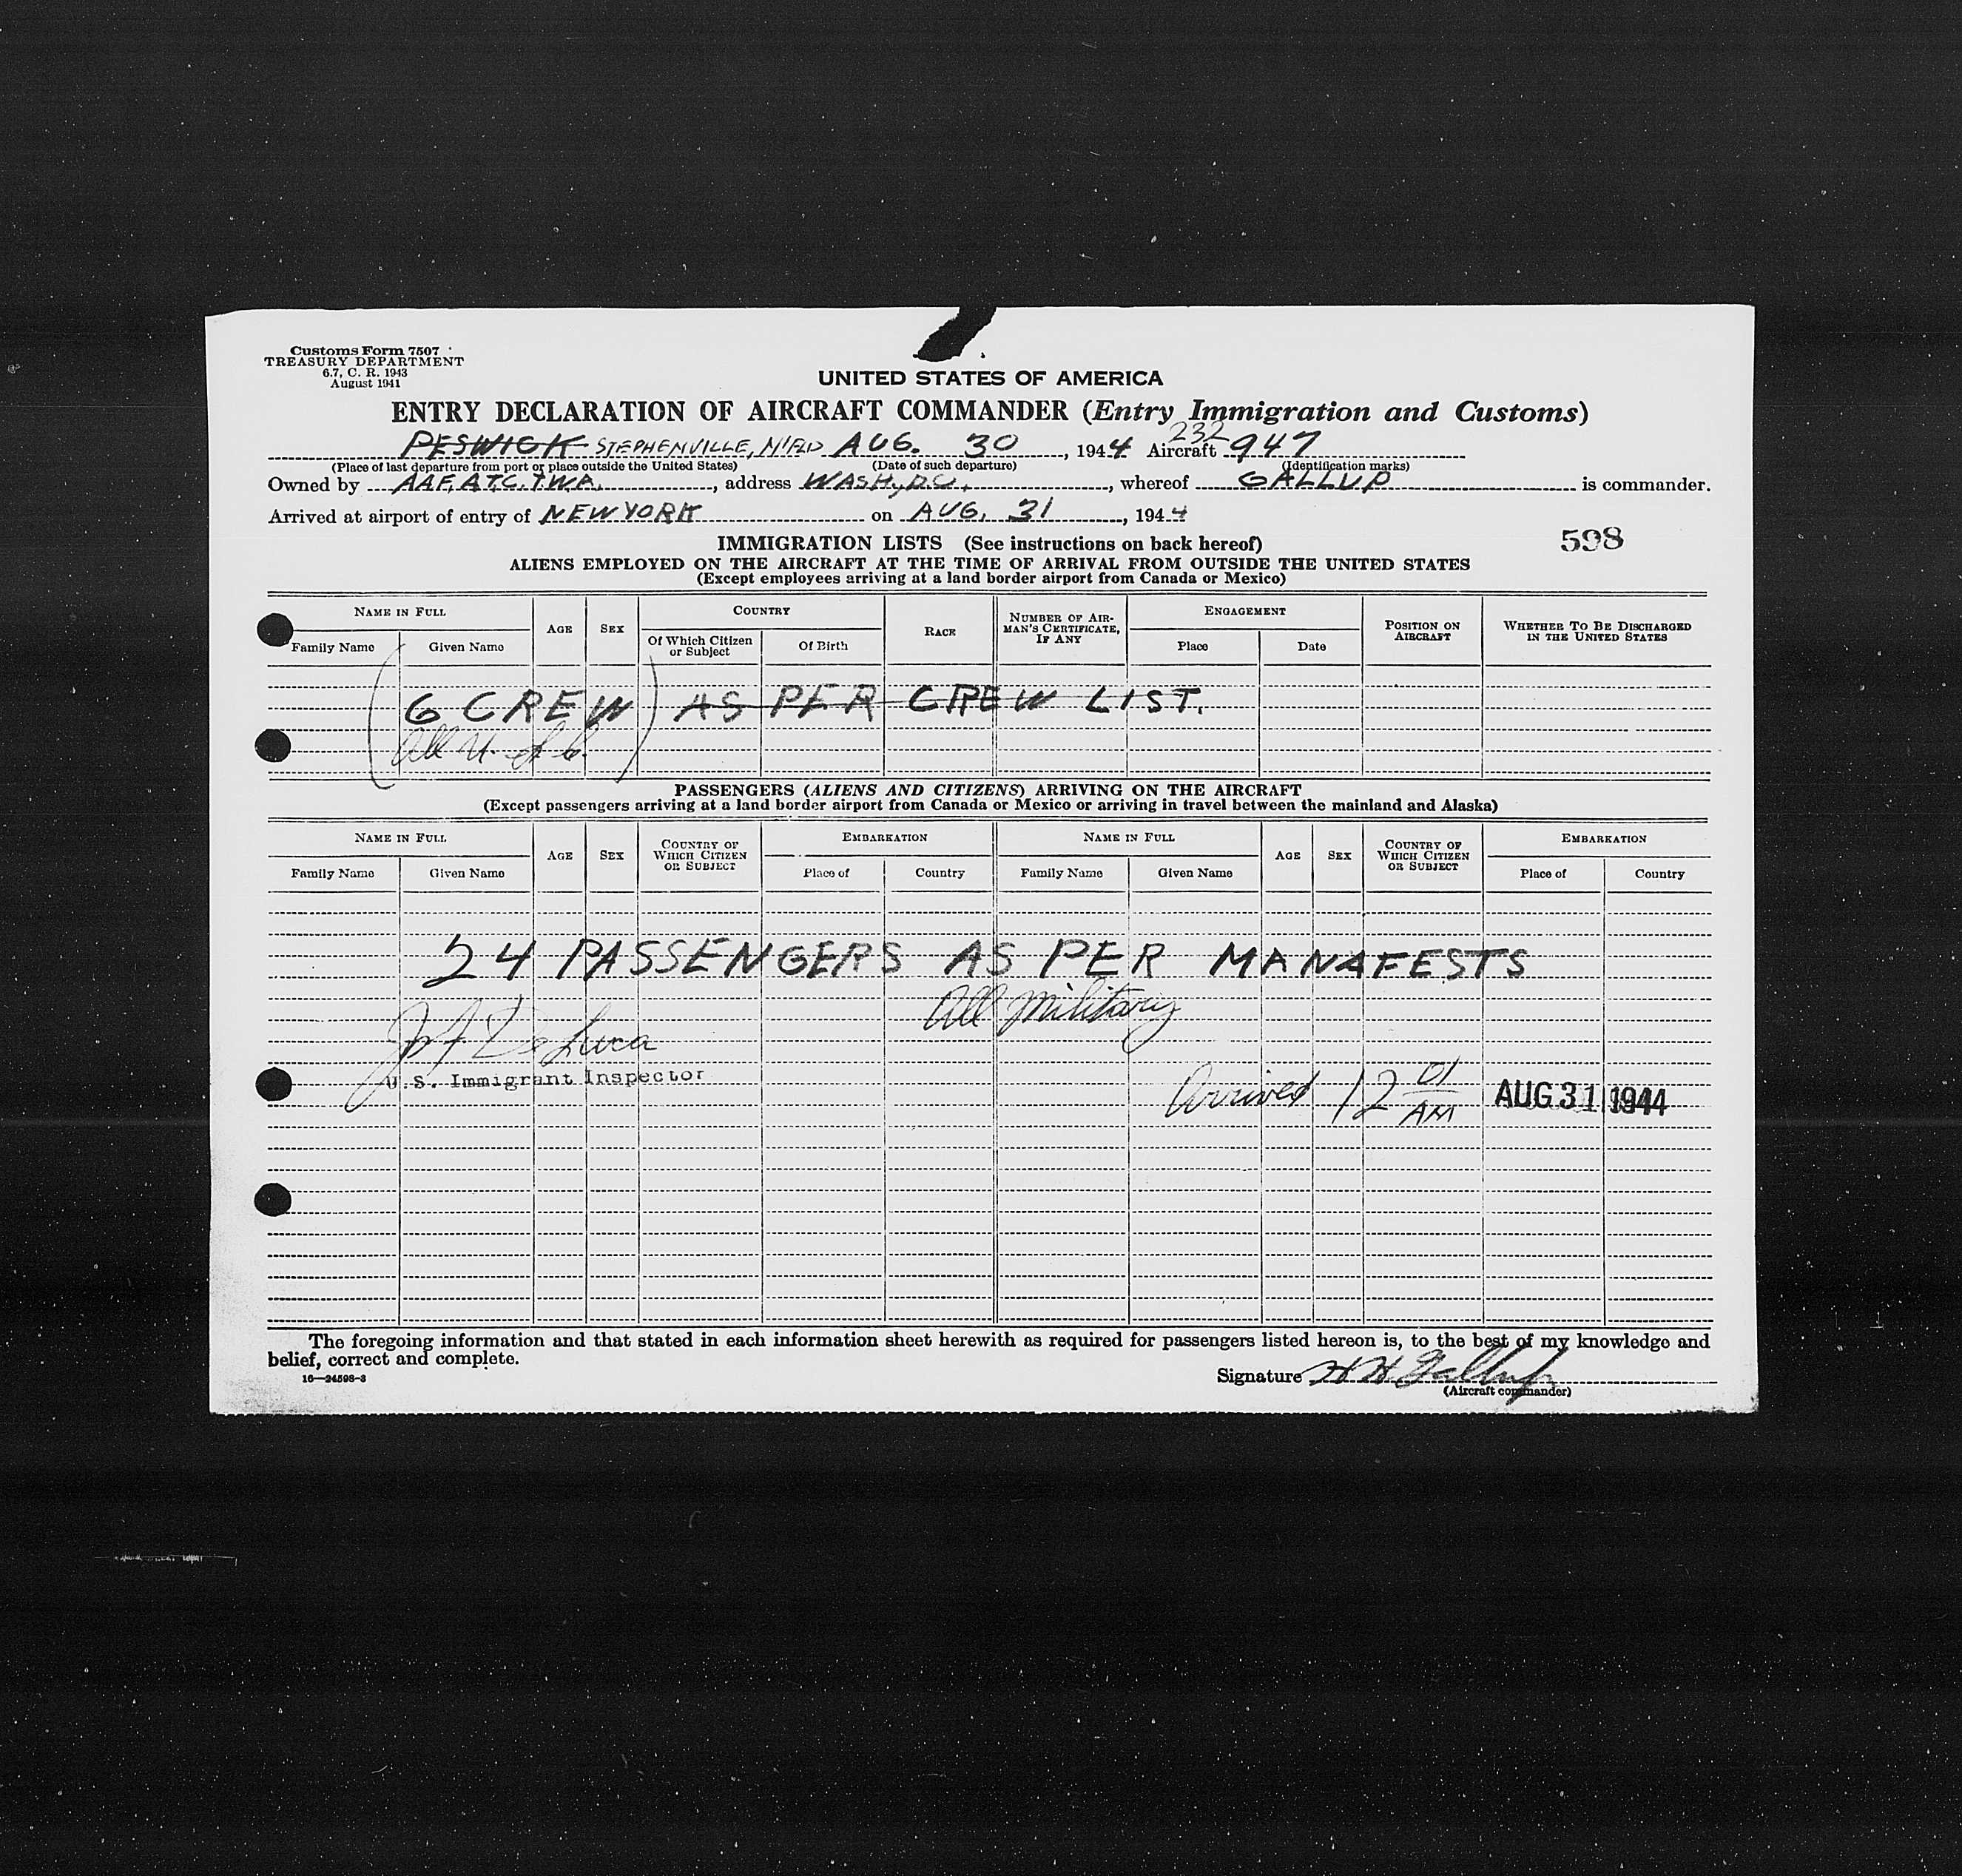 Customs Form 7507
TREASURY DEPARTMENT
6.7, C. R. 1943
August 1941
UNITED STATES OF AMERICA
ENTRY DECLARATION OF AIRCRAFT COMMANDER (Entry Immigration and Customs)
PESWICK STEPHENVILLE, N'FLD AUG. 30, 1944 Aircraft 232 947
(Place of last departure from port or place outside the United States) (Date of such departure) (Identification marks)
Owned by AAF, A.T.C. T.W.A., address WASH, D.C., whereof GALLUP is commander.
Arrived at airport of entry of NEW YORK on AUG. 31, 1944
598
IMMIGRATION LISTS (See instructions on back hereof)
ALIENS EMPLOYED ON THE AIRCRAFT AT THE TIME OF ARRIVAL FROM OUTSIDE THE UNITED STATES
(Except employees arriving at a land border airport from Canada or Mexico)
NAME IN FULL AGE SEX COUNTRY RACE NUMBER OF AIRMAN'S CERTIFICATE, IF ANY ENGAGEMENT POSITION ON AIRCRAFT WHETHER TO BE DISCHARGED IN THE UNITED STATES
Family Name Given Name Of Which Citizen or Subject Of Birth Place Date
(6 CREW) AS PER CREW LIST.
All U. S. C.
PASSENGERS (ALIENS AND CITIZENS) ARRIVING ON THE AIRCRAFT
(Except passengers arriving at a land border airport from Canada or Mexico or arriving in travel between the mainland and Alaska)
NAME IN FULL AGE SEX COUNTRY OF WHICH CITIZEN OR SUBJECT EMBARKATION NAME IN FULL AGE SEX COUNTRY OF WHICH CITIZEN OR SUBJECT EMBARKATION
Family Name Given Name Place of Country Family Name Given Name Place of Country
24 PASSENGERS AS PER MANAFESTS
All Military
De Luca
U.S. Immigrant Inspector
Arrived 12 01 AM AUG 31 1944
The foregoing information and that stated in each information sheet herewith as required for passengers listed hereon is, to the best of my knowledge and
belief, correct and complete.
16—24598-3
Signature H H Gallup
(Aircraft commander)